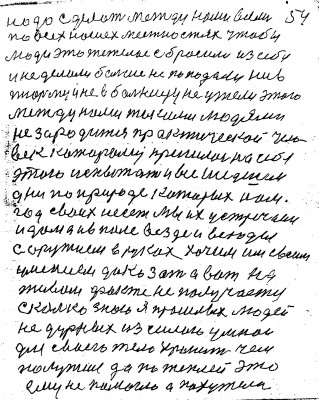 надо сделат между нами всеми 54
по всех наших местностях чтобы
люди это тяжелое сбросили из себя
и не делали больше не попадали ни в
тюрму ни в болницу неужели этого
между нами такими людями
не зародится практической чело
век которому пришлос на себя
этого испытат и все
они по природе которых пом.
год своих несет мы их устречаем
и дома и в поле везде и всюды
с оружием в руках хочим им своим
умением доказат а вот на
живом факте не получаем
сколко знаю я прошлых людей
не дурных из силою умной
для своего тело хранит чем
получше да потеплей это
ему не помогло а